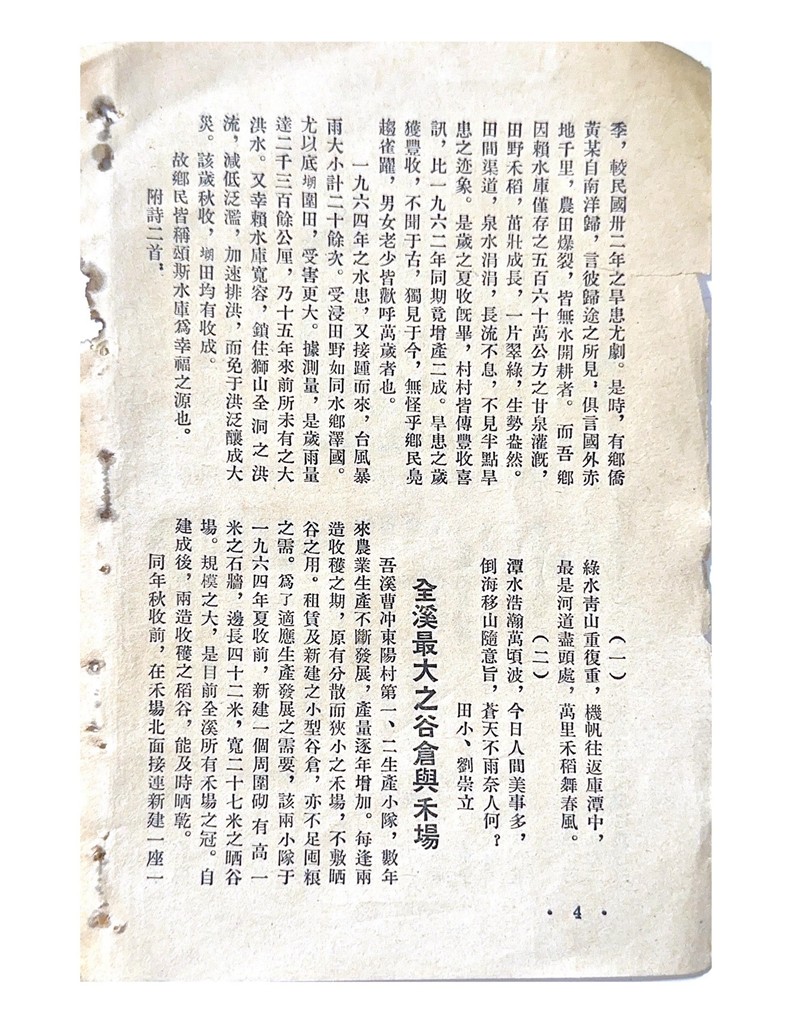 季，較民國卅二年之旱患尤劇。是時，有鄉僑
黃某自南洋歸，言彼歸途之所見，俱言國外赤
地千里，農田爆裂，皆無水開耕者。而吾鄉
因賴水庫僅存之五百六十萬公方之甘泉灌漑，
田野禾稻，茁壯成長，一片翠綠，生勢盎然。
田間渠道，泉水涓涓，長流不息，不見半點旱
患之迹象。是歲之夏收旣畢，村村皆傳豐收喜
訊，比一九六二年同期竟增產二成。旱患之歲
獲豐收，不聞于古，獨見于今，無怪乎鄉民鳧
趨雀躍，男女老少皆歡呼萬歲者也。
一九六四年之水患，又接踵而來，台風暴
雨大小計二十餘次。受浸田野如同水鄉澤國。
尤以底塱圍田，受害更大。據測量，是歲雨量
達二千三百餘公厘，乃十五年來前所未有之大
洪水。又幸賴水庫寬容，鎖住獅山全洞之洪
流，減低泛濫，加速排洪，而免于洪泛釀成大
災。該歲秋收，塱田均有收成。
故鄉民皆稱頌斯水庫爲幸福之源也。
附詩二首，
（一）
綠水靑山重復重，機帆往返庫潭中，
最是河道盡頭處，萬里禾稻舞春風。
（二）
潭水浩瀚萬頃波，今日人間美事多，
倒海移山隨意旨，蒼天不雨奈人何？
田小、劉崇立
全溪最大之谷倉與禾場
吾溪曹冲東陽村第一、二生產小隊，數年
來農業生產不斷發展，產量逐年增加。每逢兩
造收穫之期，原有分散而狹小之禾場，不敷晒
谷之用。租賃及新建之小型谷倉，亦不足囤粮
之需。爲了適應生產發展之需要，該兩小隊于
一九六四年夏收前，新建一個周圍砌有高一
米之石牆，邊長四十二米，寬二十七米之晒谷
場。規模之大，是目前全溪所有禾場之冠。自
建成後，兩造收穫之稻谷，能及時晒乾。
同年秋收前，在禾場北面接連新建一座一
• 4 •